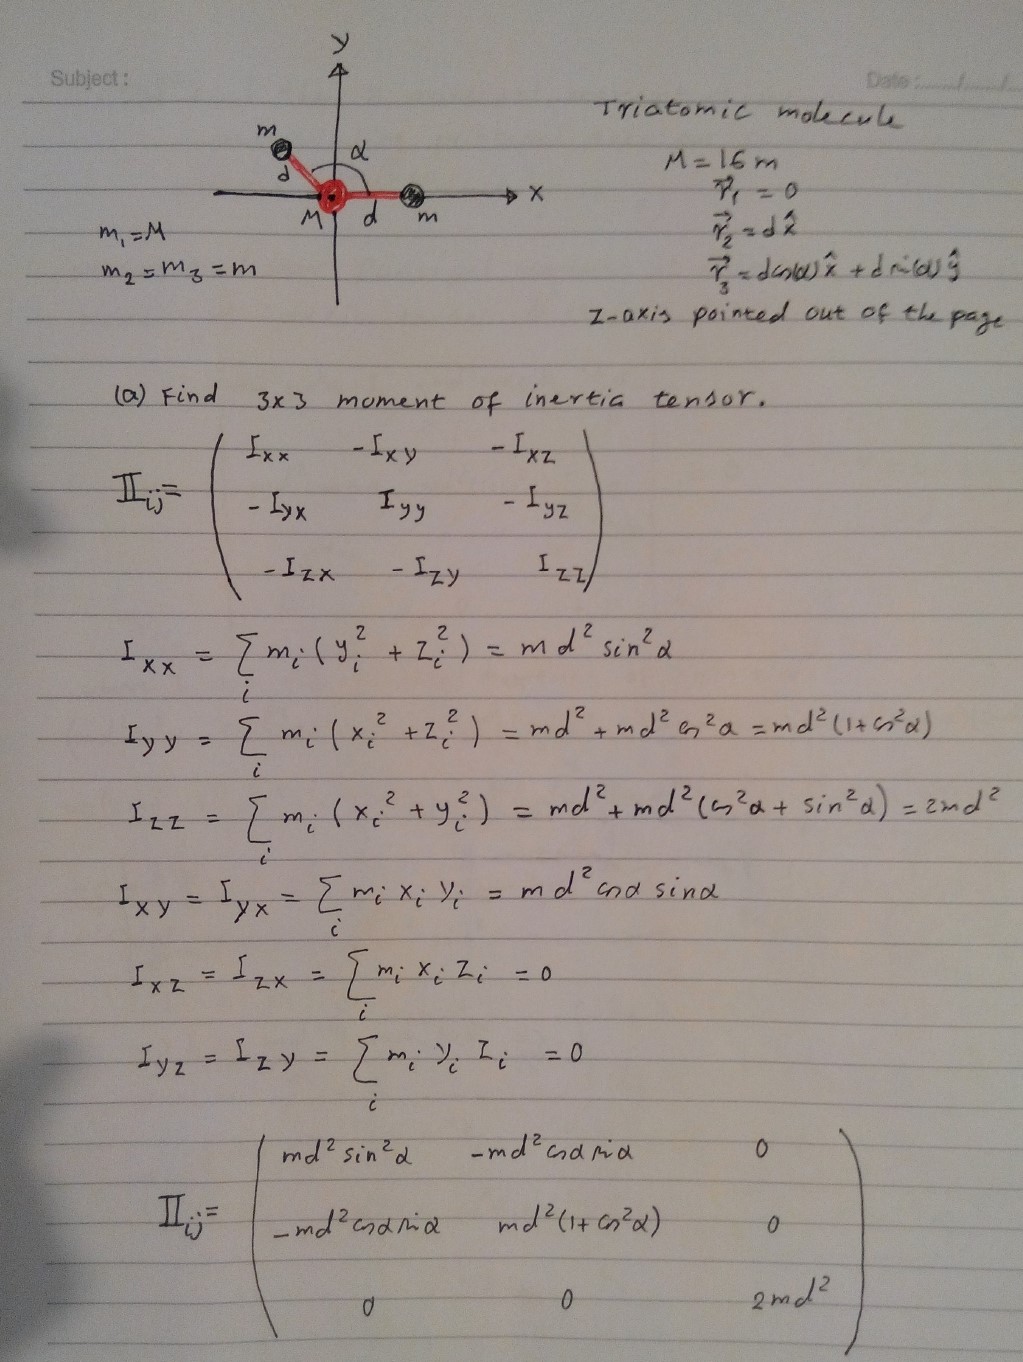 Subject :
Date :
y
Triatomic molecule
m
α
d
M = 16 m
r⃗₁ = 0
x
M
d
m
m₁ = M
r⃗₂ = d x̂
m₂ = m₃ = m
r⃗₃ = d cos(α) x̂ + d sin(α) ŷ
z-axis pointed out of the page
(a) Find 3x3 moment of inertia tensor.
Ixx -Ixy -Ixz
𝕀ij = -Iyx Iyy -Iyz
-Izx -Izy Izz
Ixx = Σi mi (yi² + zi²) = md² sin²α
Iyy = Σi mi (xi² + zi²) = md² + md² cos²α = md² (1 + cos²α)
Izz = Σi mi (xi² + yi²) = md² + md² (cos²α + sin²α) = 2md²
Ixy = Iyx = Σi mi xi yi = md² cosα sinα
Ixz = Izx = Σi mi xi zi = 0
Iyz = Izy = Σi mi yi zi = 0
md² sin²α -md² cosα sinα 0
𝕀ij = -md² cosα sinα md² (1 + cos²α) 0
0 0 2md²